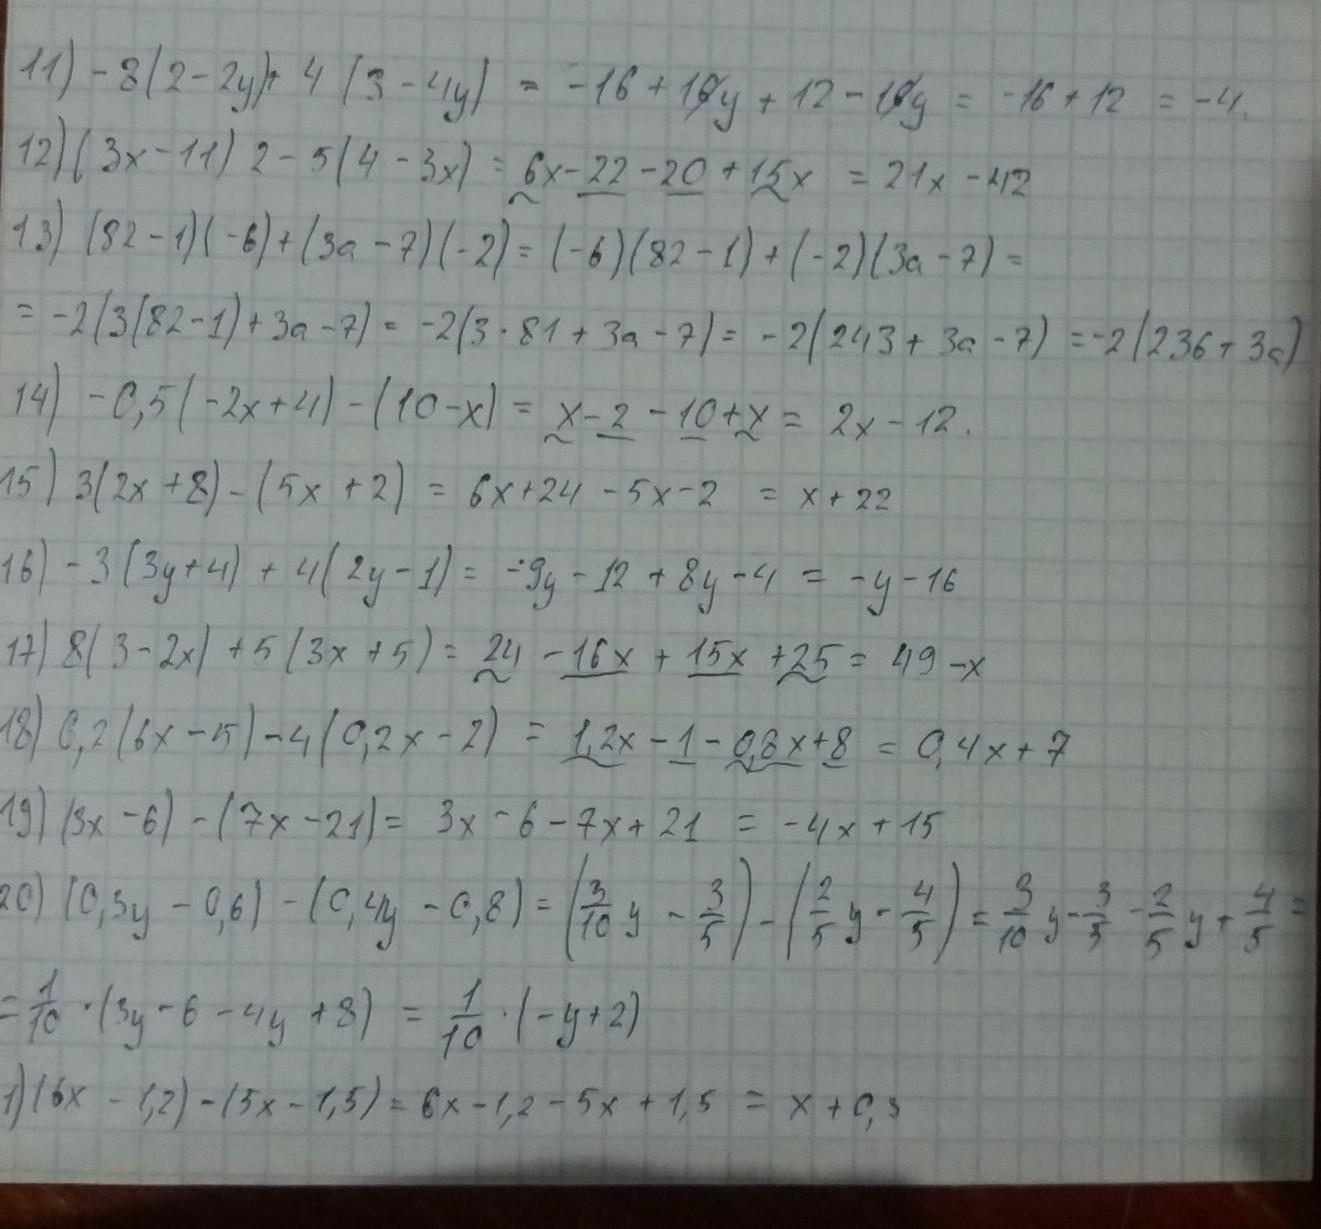 11) -8(2-2y)+ 4 (3-4y) = -16+16y+12-16y = -16+12 = -4.
12) (3x-11) 2-5(4-3x) = 6x-22-20+15x = 21x-42
13) (82-1)(-6)+(3a-7)(-2) = (-6)(82-1)+(-2)(3a-7) =
= -2(3(82-1)+3a-7) = -2(3·81+3a-7) = -2(243+3a-7) = -2(236+3a)
14) -0,5(-2x+4)-(10-x) = x-2-10+x = 2x-12.
15) 3(2x+8)-(5x+2) = 6x+24-5x-2 = x+22
16) -3(3y+4)+4(2y-1) = -9y-12+8y-4 = -y-16
17) 8(3-2x)+5(3x+5) = 24-16x+15x+25 = 49-x
18) 0,2(6x-5)-4(0,2x-2) = 1,2x-1-0,8x+8 = 0,4x+7
19) (3x-6)-(7x-21) = 3x-6-7x+21 = -4x+15
20) (0,3y-0,6)-(0,4y-0,8) = (3/10 y - 3/5) - (2/5 y - 4/5) = 3/10 y - 3/5 - 2/5 y + 4/5 =
= 1/10 · (3y-6-4y+8) = 1/10 · (-y+2)
1) (6x-1,2)-(5x-1,5) = 6x-1,2-5x+1,5 = x+0,3